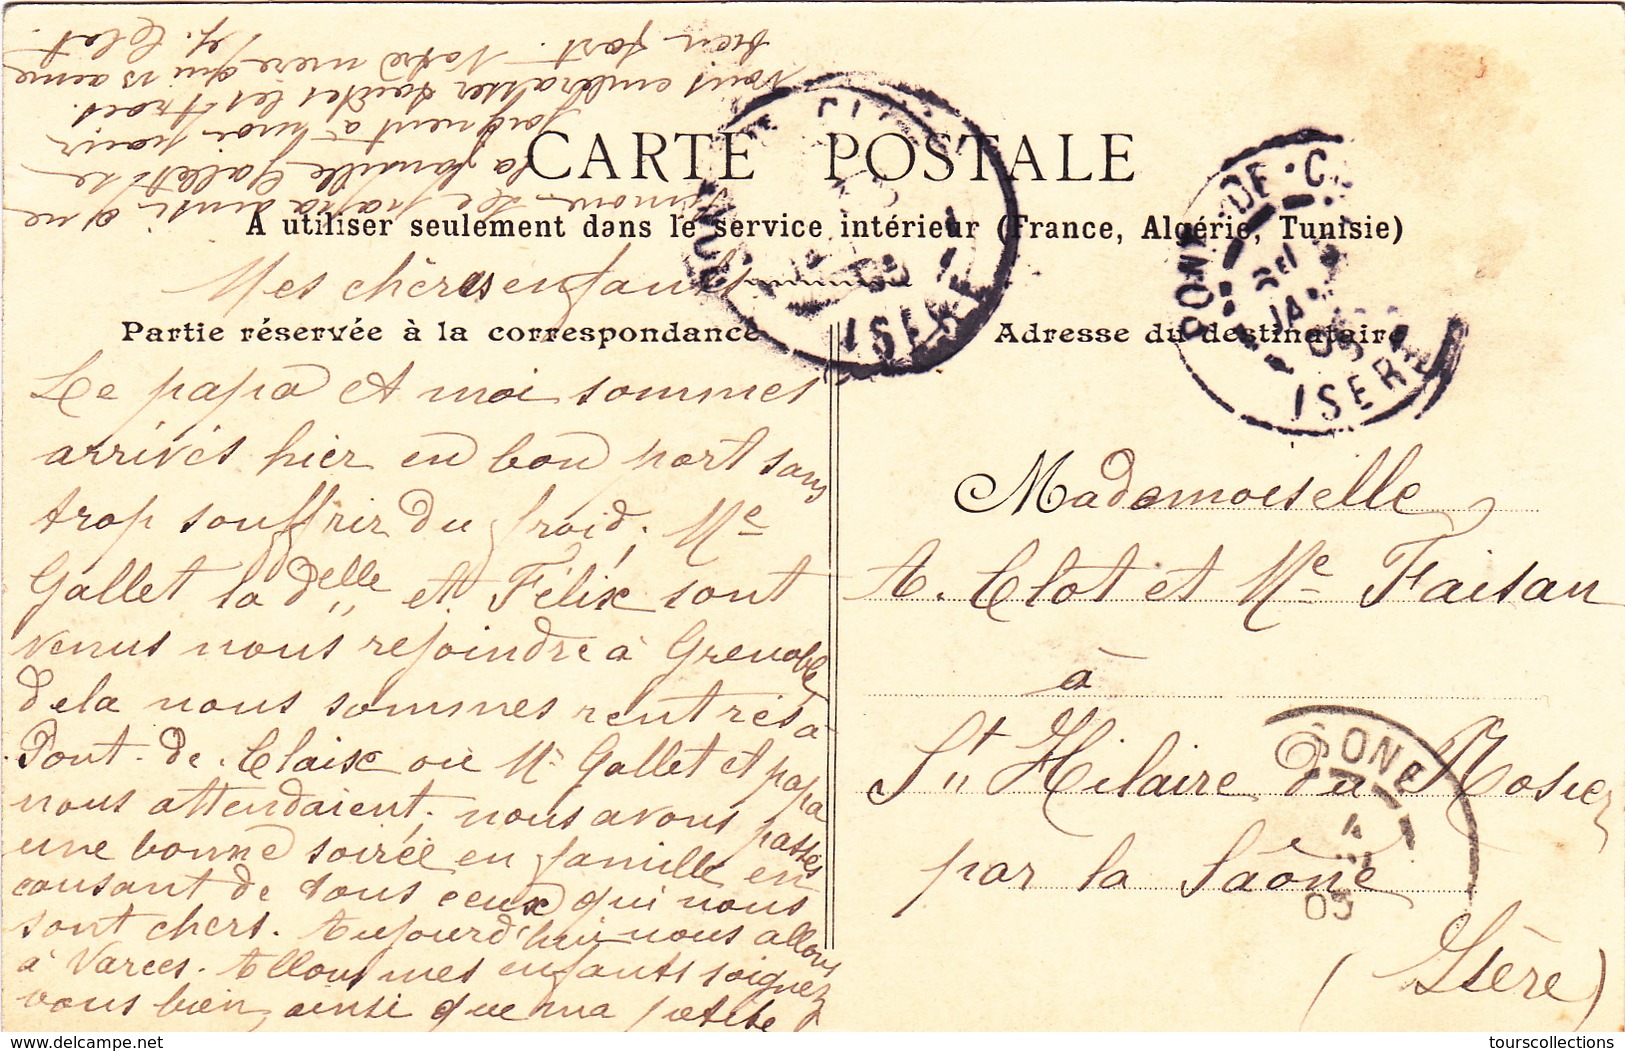 CARTE POSTALE
A utiliser seulement dans le service intérieur (France, Algérie, Tunisie)
Partie réservée à la correspondance
Adresse du destinataire
Mes chères enfants
Le papa et moi sommes
arrivés hier en bon port sans
trop souffrir du froid. Me
Gallet sa delle et Félix sont
venus nous rejoindre à Grenoble
de la nous sommes rentrés à
Pont-de-Claix où Me Gallet et papa
nous attendaient, nous avons passés
une bonne soirée en famille en
causant de tous ceux qui nous
sont chers. Aujourd'hui nous allons
à Varces. Allons mes enfants soignez
vous bien, ainsi que ma petite
Simone. Le papa ainsi que
la famille Gallet se
joignent à moi pour
vous embrasser toutes les trois
bien fort. Votre mère qui vs aime
Clot
Mademoiselle
A. Clot et Me Faisan
à
St Hilaire du Rosier
par la Saône
(Isère)
PONT DE C
ISÈRE
05
ISÈRE
SONE
05
delcampe.net
tourscollections